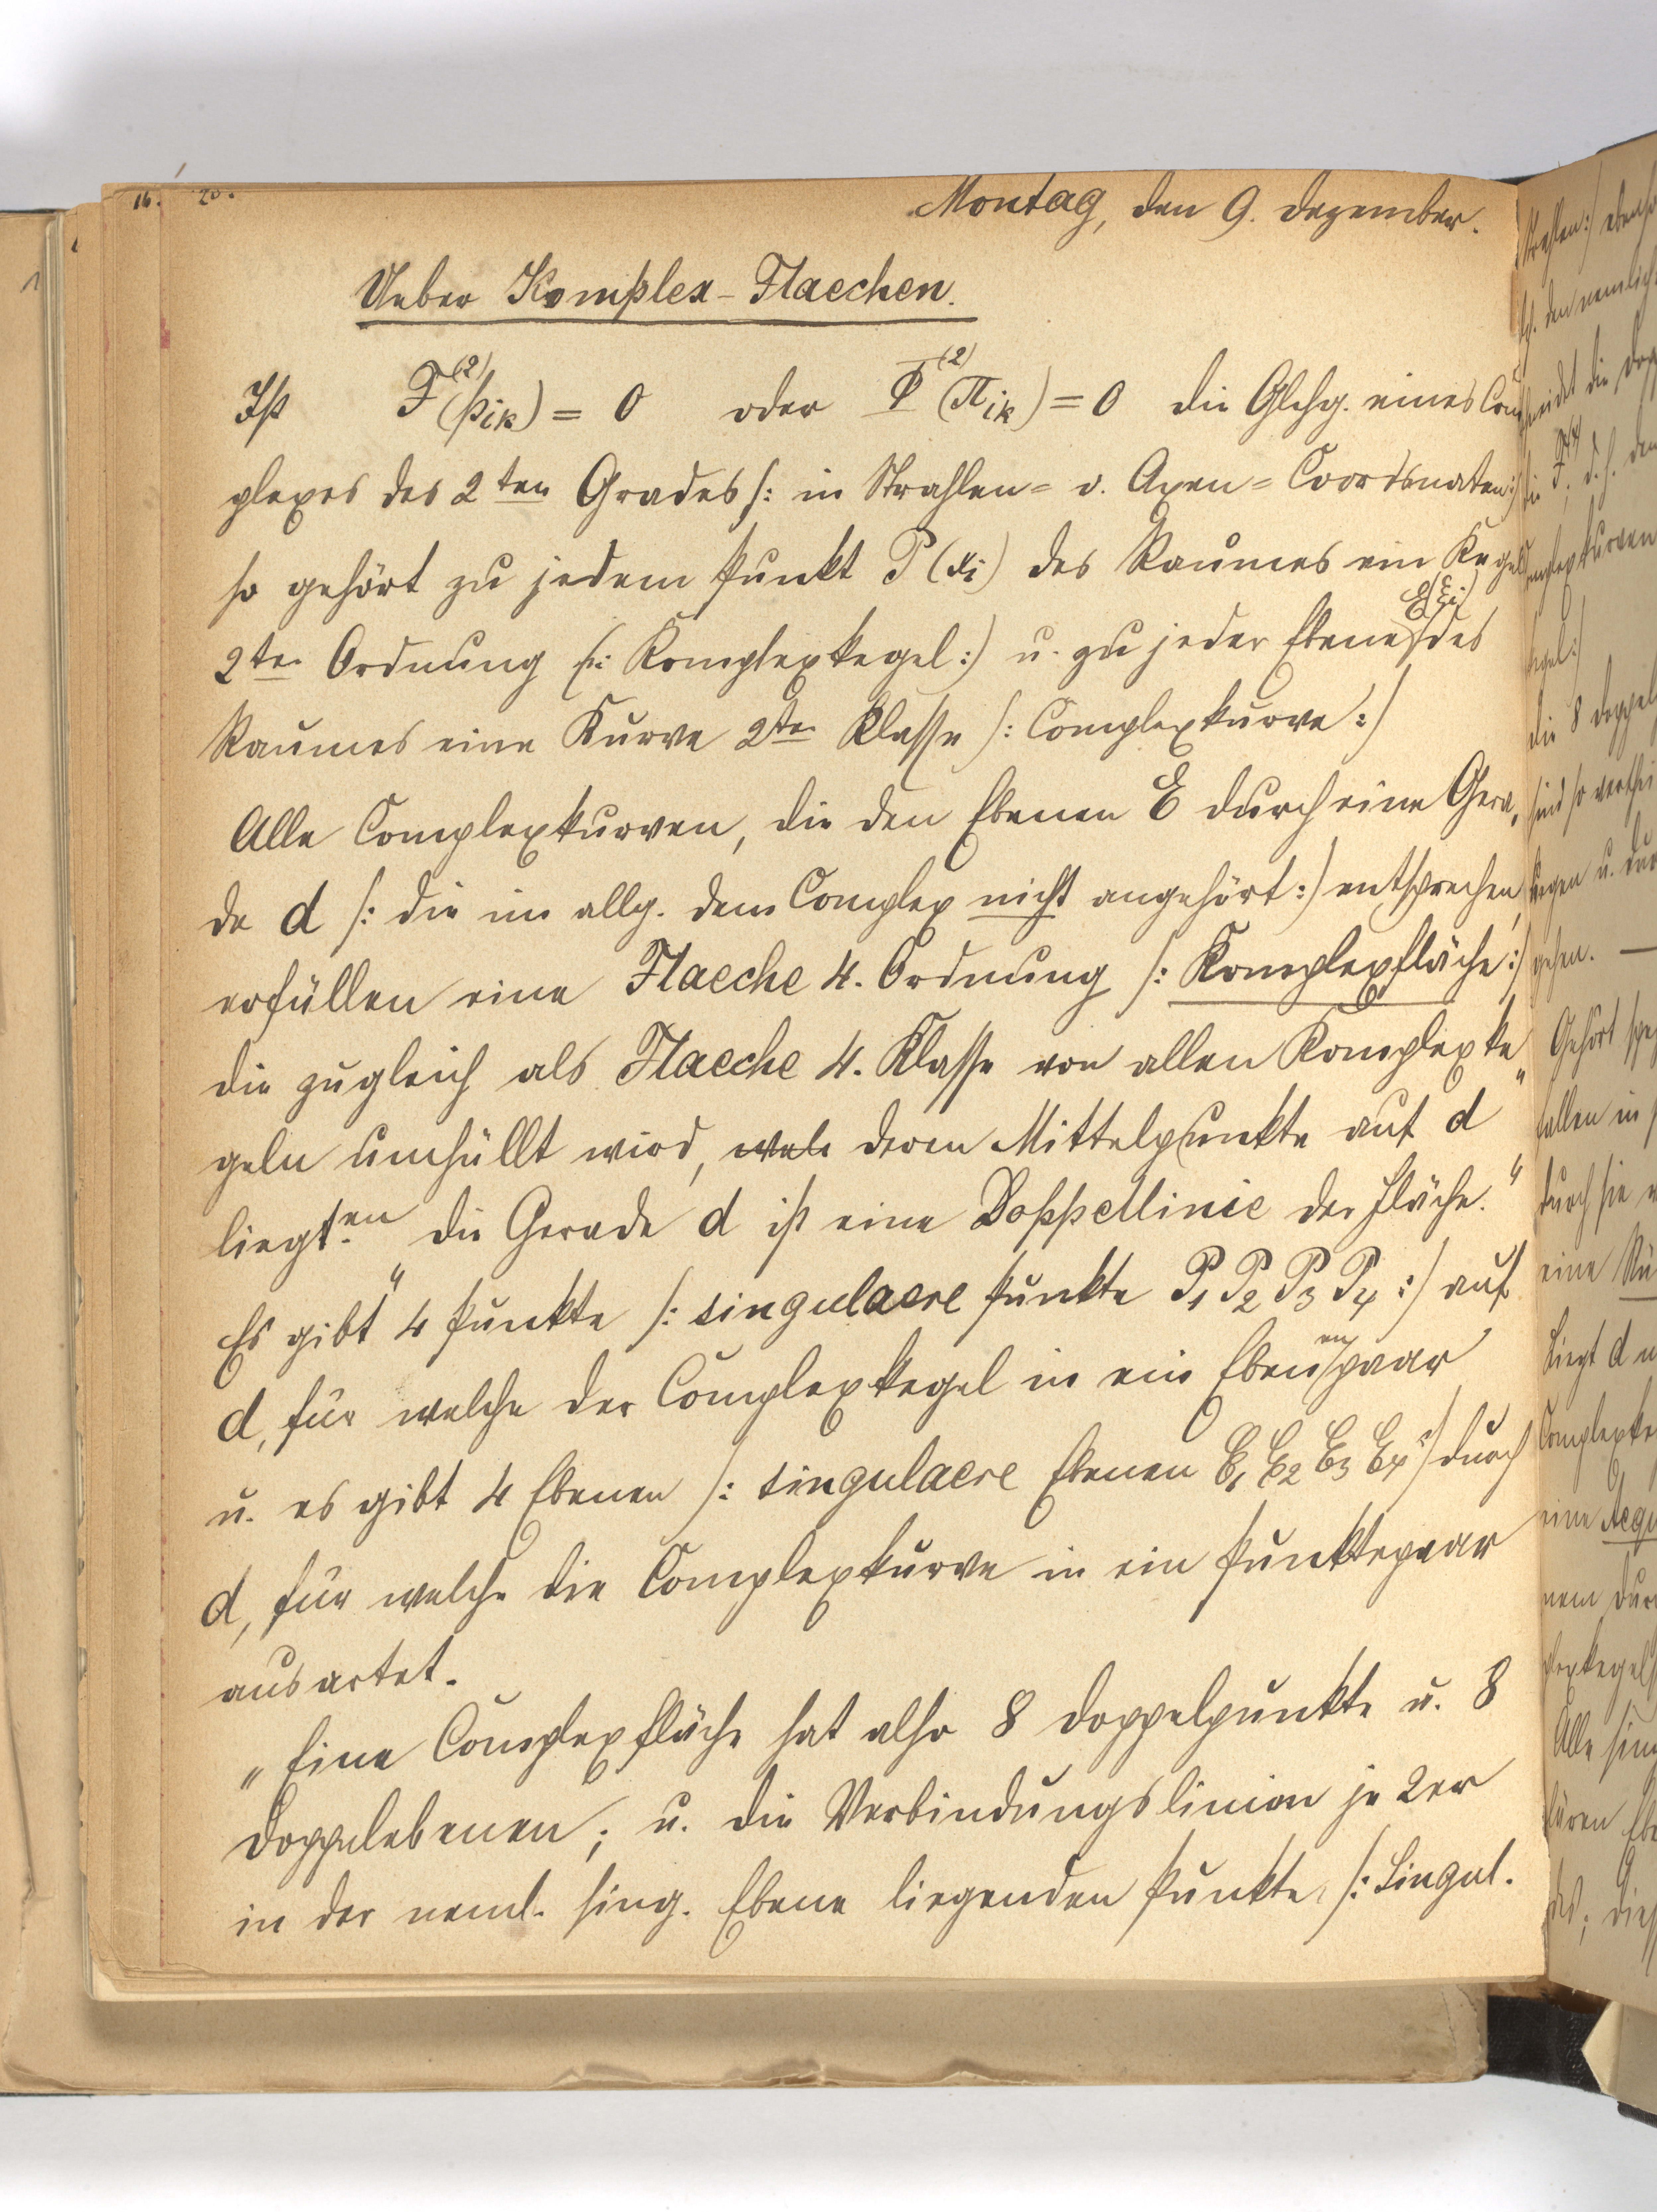 16. 20.
Montag, den 9. Dezember.
Ueber Komplex-Flaechen.
Ist F⁽²⁾(p_ik) = 0 oder Φ⁽²⁾(π_ik) = 0 die Glchg. eines Com
plexes des 2ten Grades /: in Strahlen= o. Axen=Coordinaten:/
so gehört zu jedem Punkt P (x_i) des Raumes ein Kegel
2ter Ordnung /: Komplexkegel :/ u. zu jeder Ebene E(ξ_i) des
Raumes eine Kurve 2ter Klasse /: Complexkurve :/
Alle Complexkurven, die den Ebenen E durch eine Gera,
de d /: die im allg. dem Complex nicht angehört :/ entsprechen,
erfüllen eine Flaeche 4. Ordnung /: Komplexfläche :/
die zugleich als Flaeche 4. Klasse von allen Komplexke"
geln umhüllt wird, wel deren Mittelpunkte auf d
liegt.en "Die Gerade d ist eine Doppellinie der Fläche."
Es gibt "4 Punkte /: singulaere Punkte P₁ P₂ P₃ P₄ :/ auf
d, für welche der Complexkegel in ein Ebenenpaar
u. es gibt 4 Ebenen /: singulaere Ebenen E₁ E₂ E₃ E₄ :/ durch
d, für welche die Complexkurve in ein Punktepaar
ausartet.
„Eine Complexfläche hat also 8 Doppelpunkte u. 8
Doppelebenen; u. die Verbindungslinien je 2er
in der neml. sing. Ebene liegenden Punkte /: Singul.